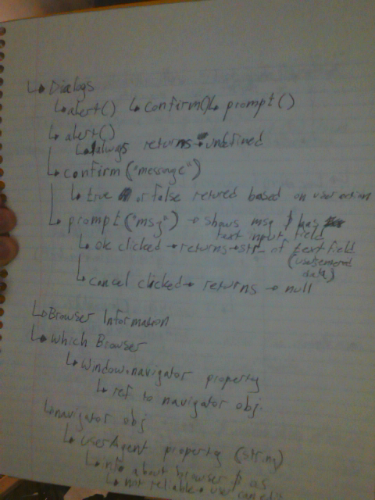 ↳ Dialogs
↳ alert() ↳ confirm() ↳ prompt()
↳ alert()
↳ Always returns undefined
↳ confirm("message")
↳ true or false retured based on user action
↳ prompt("msg") → shows msg & has
text input field
↳ ok clicked → returns → str. of text field
(user entered
data)
↳ cancel clicked → returns → null
↳ Browser Information
↳ Which Browser
↳ window.navigator property
↳ ref to navigator obj.
↳ navigator obj
↳ userAgent property (string)
↳ info about browser & os
↳ not reliable → user can edit